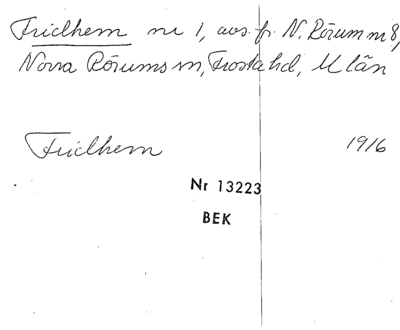 Fridhem nr 1, avs. fr. N. Rörum nr 8,
Norra Rörums sn, Frosta hd, M län
Fridhem 1916
Nr 13223
BEK